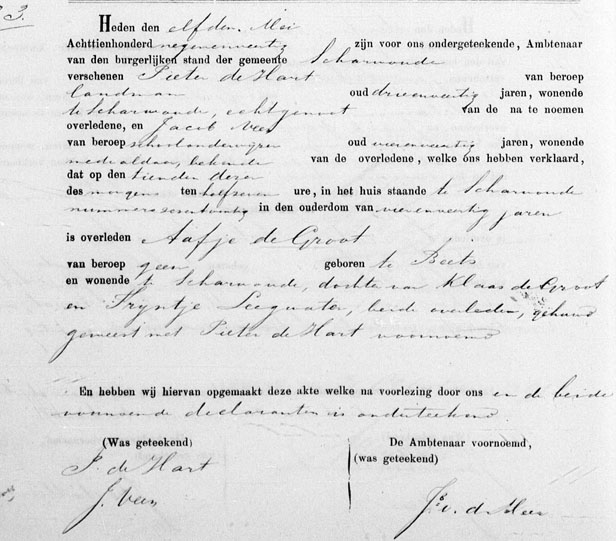 23.
Heden den elfden Mei
Achttienhonderd negenennegentig zijn voor ons ondergeteekende, Ambtenaar
van den burgerlijken stand der gemeente Scharwoude
verschenen Pieter de Hart van beroep
landman oud drieenveertig jaren, wonende
te Scharwoude, echtgenoot van de na te noemen
overledene, en Jacob Veen
van beroep schoolonderwijzer oud jaren, wonende
mede aldaar, bekende van de overledene, welke ons hebben verklaard,
dat op den tienden dezer
des morgens ten half zeven ure, in het huis staande te Scharwoude
nummer in den ouderdom van vierenveertig jaren
is overleden Aafje de Groot
van beroep geen geboren te Beets
en wonende te Scharwoude, dochter van Klaas de Groot
en Trijntje Leegwater, beide overleden, gehuwd
geweest met Pieter de Hart voornoemd
En hebben wij hiervan opgemaakt deze akte welke na voorlezing door ons en de beide
voornoemde declaranten is onderteekend
(Was geteekend) De Ambtenaar voornoemd,
(was geteekend)
P. de Hart
J. Veen